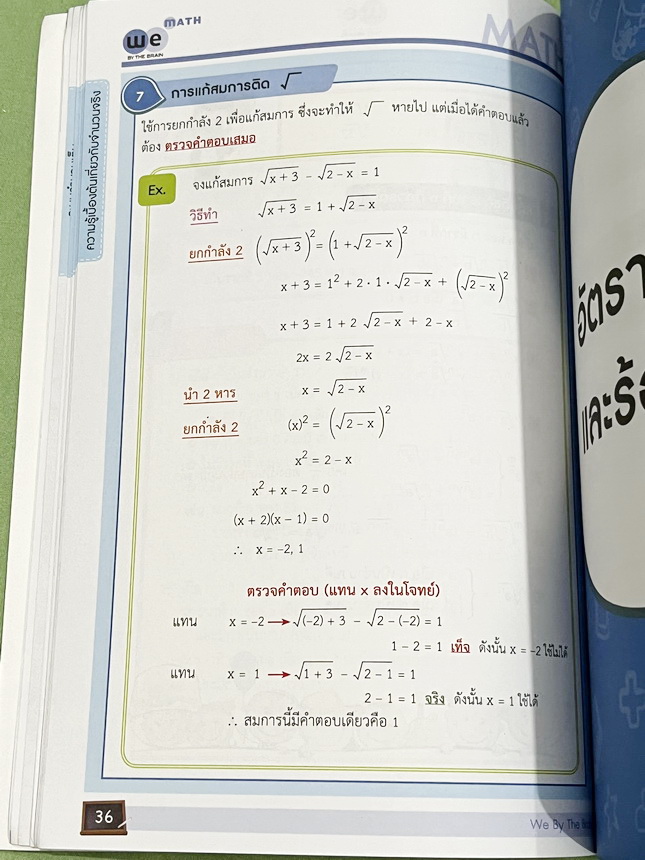 we MATH
BY THE BRAIN
MATH
7 การแก้สมการติด √
ใช้การยกกำลัง 2 เพื่อแก้สมการ ซึ่งจะทำให้ √ หายไป แต่เมื่อได้คำตอบแล้ว
ต้อง ตรวจคำตอบเสมอ
Ex. จงแก้สมการ √(x + 3) − √(2 − x) = 1
วิธีทำ √(x + 3) = 1 + √(2 − x)
ยกกำลัง 2 (√(x + 3))² = (1 + √(2 − x))²
x + 3 = 1² + 2 · 1 · √(2 − x) + (√(2 − x))²
x + 3 = 1 + 2 √(2 − x) + 2 − x
2x = 2 √(2 − x)
นำ 2 หาร x = √(2 − x)
ยกกำลัง 2 (x)² = (√(2 − x))²
x² = 2 − x
x² + x − 2 = 0
(x + 2)(x − 1) = 0
∴ x = −2, 1
ตรวจคำตอบ (แทน x ลงในโจทย์)
แทน x = −2 → √((−2) + 3) − √(2 − (−2)) = 1
1 − 2 = 1 เท็จ ดังนั้น x = −2 ใช้ไม่ได้
แทน x = 1 → √(1 + 3) − √(2 − 1) = 1
2 − 1 = 1 จริง ดังนั้น x = 1 ใช้ได้
∴ สมการนี้มีคำตอบเดียวคือ 1
36
We By The
ความรู้เบื้องต้นเกี่ยวกับจำนวนจริง
อัตรา
และร้อ